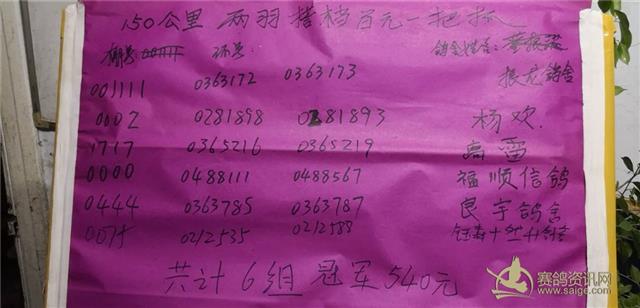 150公里 两羽搭档百元一把抓
棚号 环号 鸽舍姓名:
001111 0363172 0363173 振龙鸽舍
0002 0281898 0281893 杨欢
1717 0365216 0365219 高雷
0000 0488111 0488567 福顺信鸽
0444 0363785 0363787 良宇鸽舍
0212535 0212588
共计6组 冠军540元
赛鸽资讯网
www.saige.com